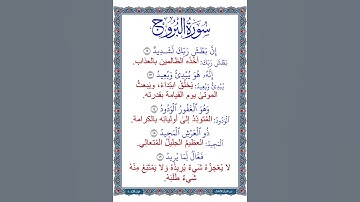 سُورَةُ الْبُرُوجِ
إِنَّ بَطْشَ رَبِّكَ لَشَدِيدٌ
بَطْشَ رَبِّكَ: أَخْذَهُ الظَّالِمِينَ بِالْعَذَابِ.
إِنَّهُ هُوَ يُبْدِئُ وَيُعِيدُ
يُبْدِئُ وَيُعِيدُ: يَخْلُقُ ابْتِدَاءً، وَيَبْعَثُ
الْمَوْتَىٰ يَوْمَ الْقِيَامَةِ بِقُدْرَتِهِ.
وَهُوَ الْغَفُورُ الْوَدُودُ
الْوَدُودُ: الْمُتَوَدِّدُ إِلَىٰ أَوْلِيَائِهِ بِالْكَرَامَةِ.
ذُو الْعَرْشِ الْمَجِيدُ
الْمَجِيدُ: الْعَظِيمُ الْجَلِيلُ الْمُتَعَالِي.
فَعَّالٌ لِّمَا يُرِيدُ
لَا يُعْجِزُهُ شَيْءٌ يُرِيدُهُ وَلَا يَمْتَنِعُ مِنْهُ
شَيْءٌ طَلَبَهُ.